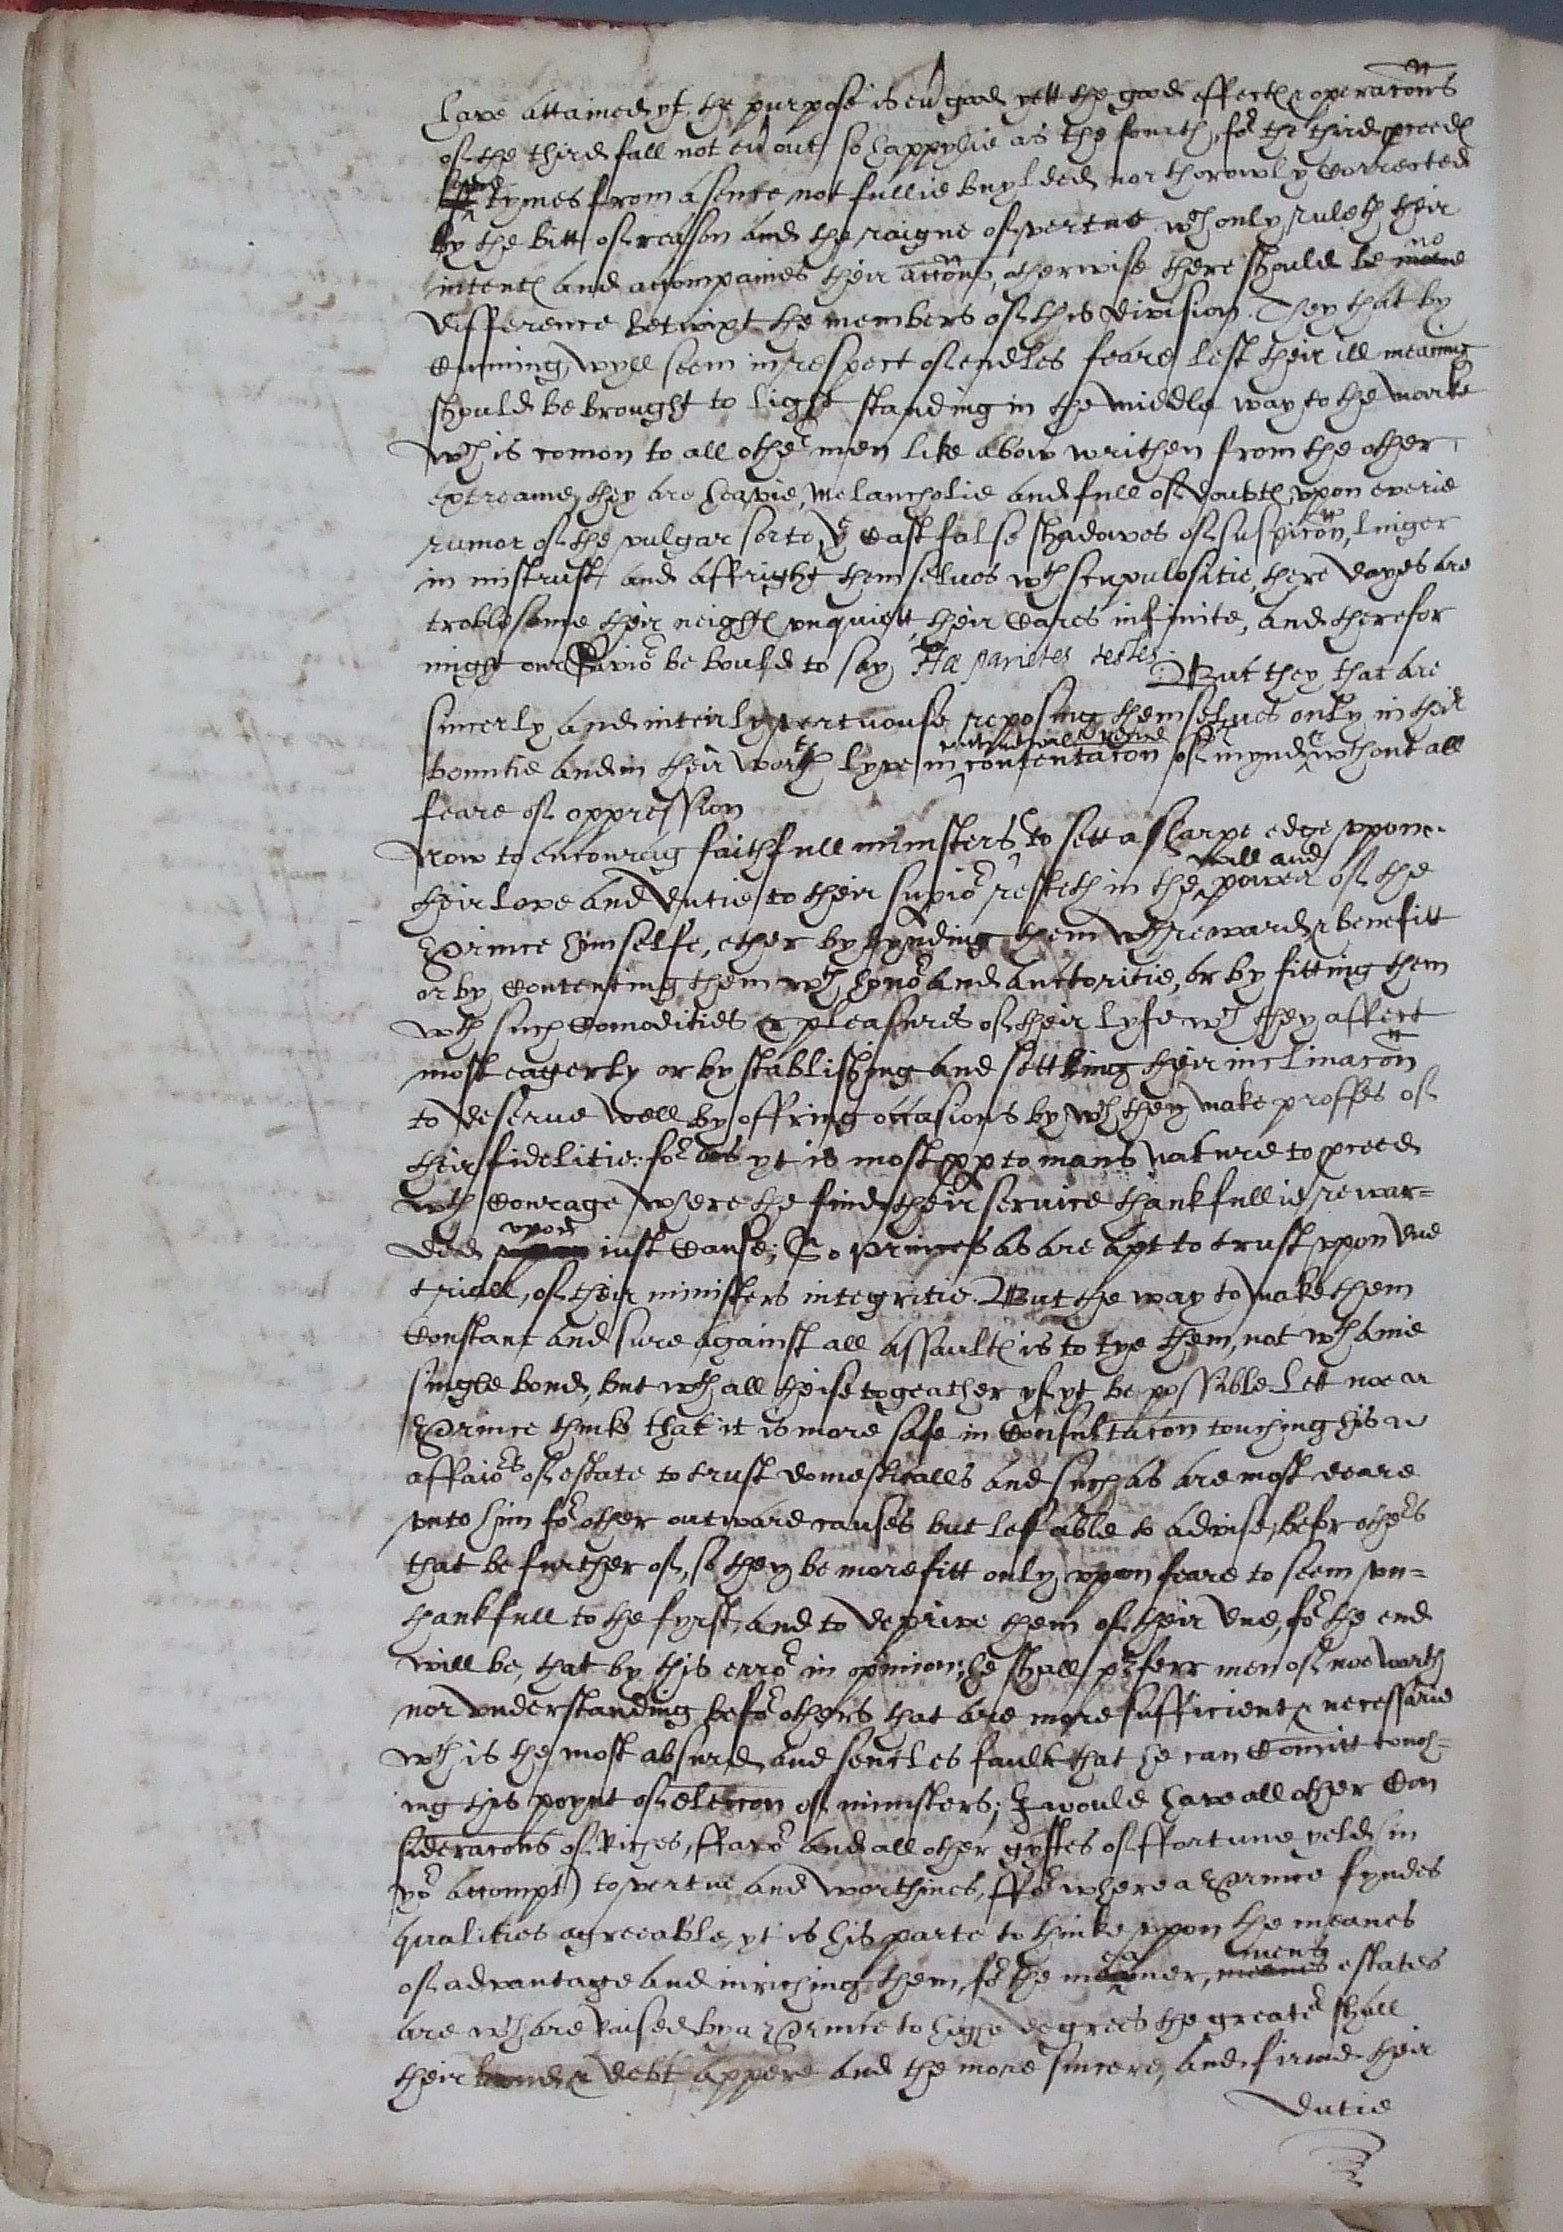 have attained yt. the purpose is eu good yett the good effectes & operacons
of the third fall not eu out so happylie as the fourth, for the third proceedes
tymes from a sence not fullie buylded nor thorowly corrected
by the bitt of reason and the raigne of vertue wch only ruleth their
intentes and accompaines their accons, otherwise there should be no
difference betwixt the members of this division. They that by
cunning wyll seem in respect of endles feare lest their ill meaning
should be brought to light standing in the middle way to the marke
wch is comon to all other men like a bow writhen from the other
extreame, they are heavie, melancholie and full of doubtes upon everie
rumor of the vulgar sorte, yt cast false shadowes of suspicon, linger
in mistrust and affright themselves wth scrupulositie, there dayes are
troblesome their neightes unquiett, their cares infinite, and therefor
might be bould to say Hæ parietes testes. But they that are
sincerly and inteirly vertuouse reposing themselves only in their
bountie and in their worth lyve in contentacon of mynde wthout all
feare of oppression
Now to encourag faithfull ministers to sett a sharpe edge upon
their love and dutie to their supior resteth in the will and power of the
Prince himselfe, ether by bynding them wth reward & benefitt
or by contenting them wth honor and auctoritie, or by fitting them
wth such comodities & pleasures of their lyfe wch they affect
most eagerly or by stablishing and settling their inclinacon
to deserve well by offring occasions by wch they make proffes of
their fidelitie: for as yt is most pp to mans nature to proceed
wth courage where the find their service thankfullie rewar=
ded upon iust cause; So Princes as are apt to trust upon due
triall, of their ministers integritie. But the way to make them
constant and sure against all assaultes is to tye them, not wth anie
single bond, but wth all theise togeather yf yt be possible. Let noe
Prince think that it is more safe in consultacon touching his
affaiors of estate to trust domesticalls and such as are most deare
unto him for other outward causes but less able to advise, befor others
that be further of, so they be more fitt only upon feare to seem un=
thankfull to the fyrst, and to deprive them of their due, for the end
will be, that by this error in opinion, he shall prferr men of noe worth
nor understanding before others that are more sufficient & necessarie
wch is the most absurd and sencles fault that he can comitt touch=
ing this poynt of eleccon of ministers; I would have all other con
sideracons of riches, ffavor and all other gyftes of ffortune yeld (in
yor attompt) to vertue and worthines, ffor where a Prince fyndes
qualities agreeable, yt is his parte to thinke upon the meanes
of advantage and inriching them, for the meaner, mens estates
are wch are raised by a Prince to highe degrees the greater shall
their bond & debt appere and the more sincere, and firme their
dutie